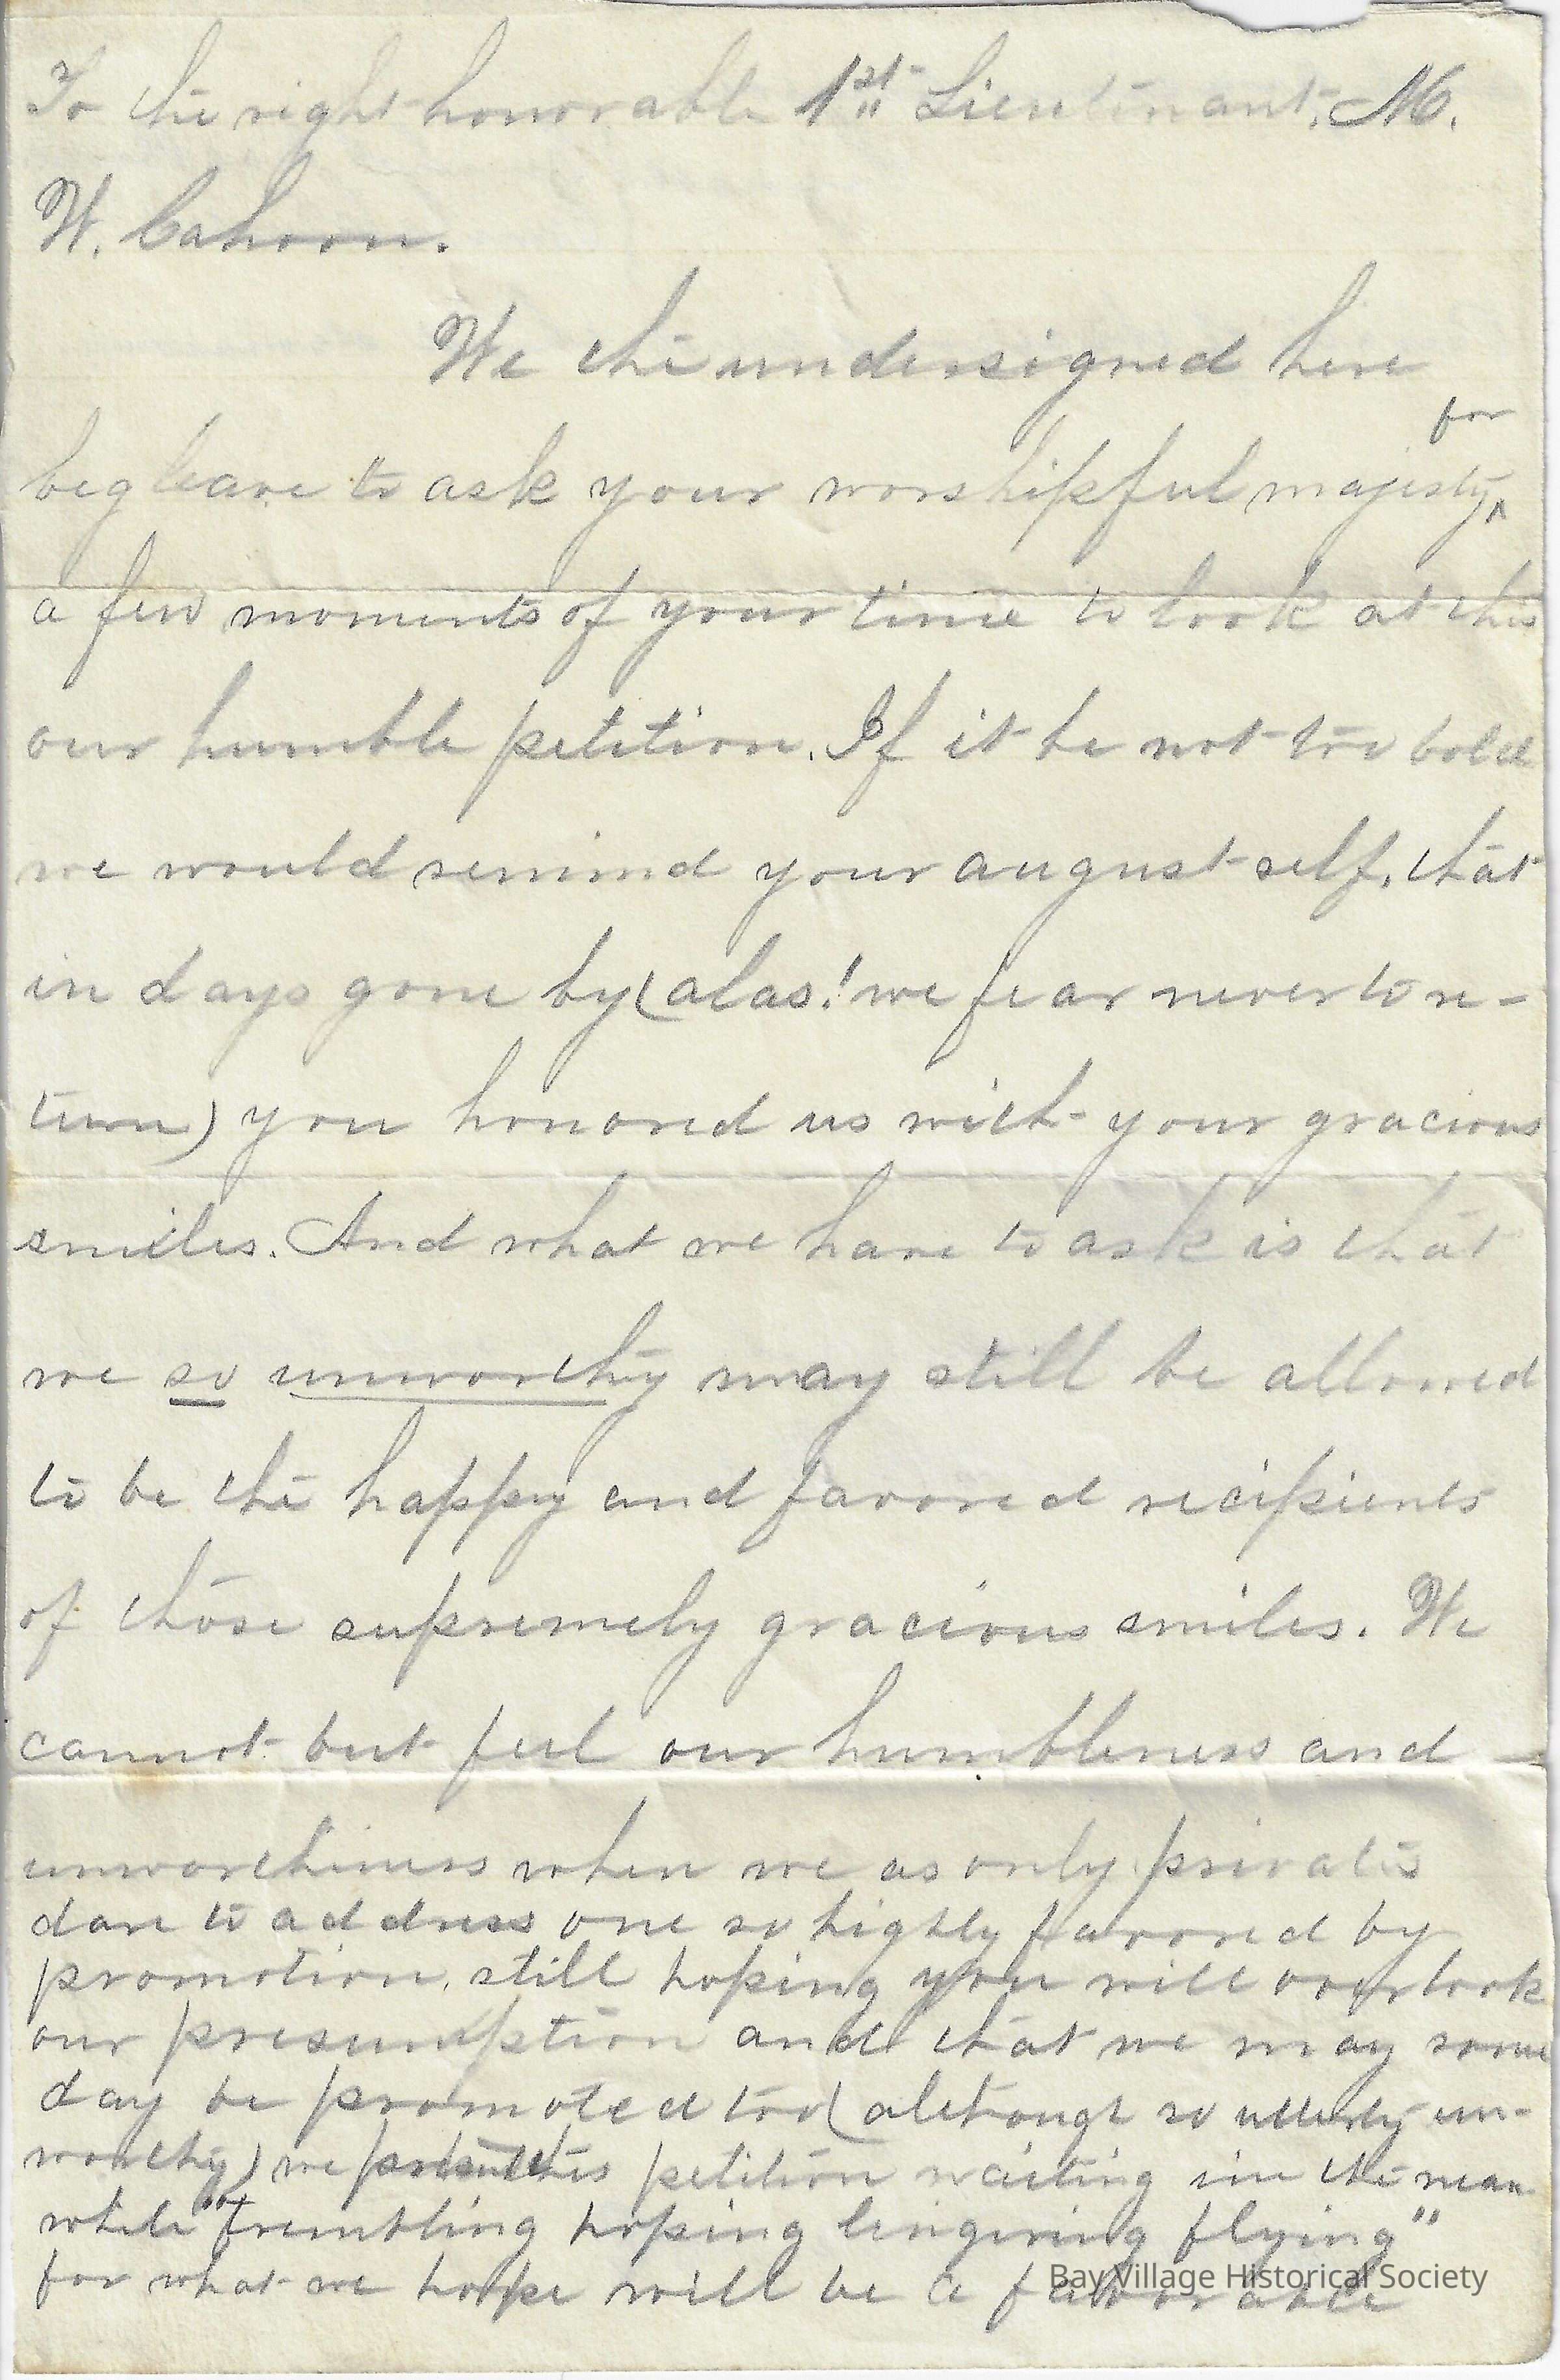 To the right honorable 1st Lieutenant, M.
W. Cahoon.
We the undersigned here
for
beg leave to ask your worshipful majesty ^
a few moments of your time to look at this
our humble petition. If it be not too bold
we would remind your august self, that
in days gone by (alas! we fear never to re-
turn) you honored us with your gracious
smiles. And what we have to ask is that
we so unworthy may still be allowed
to be the happy and favored recipients
of those supremely gracious smiles. We
cannot but feel our humbleness and
unworthiness when we as only privates
dare to address one so highly favored by
promotion, still hoping you will overlook
our presumption and that we may some
day be promoted too (although so utterly un-
worthy) we present this petition waiting in the mean
while "trembling hoping lingering flying"
for what we hope will be a favorable
Bay Village Historical Society